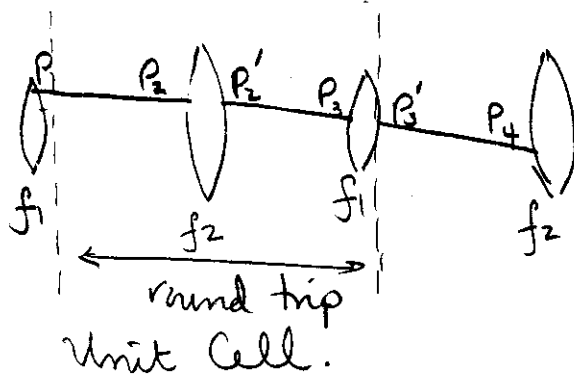 P₁ P₂ P₂' P₃ P₃' P₄
f₁ f₂ f₁ f₂
round trip
Unit Cell.